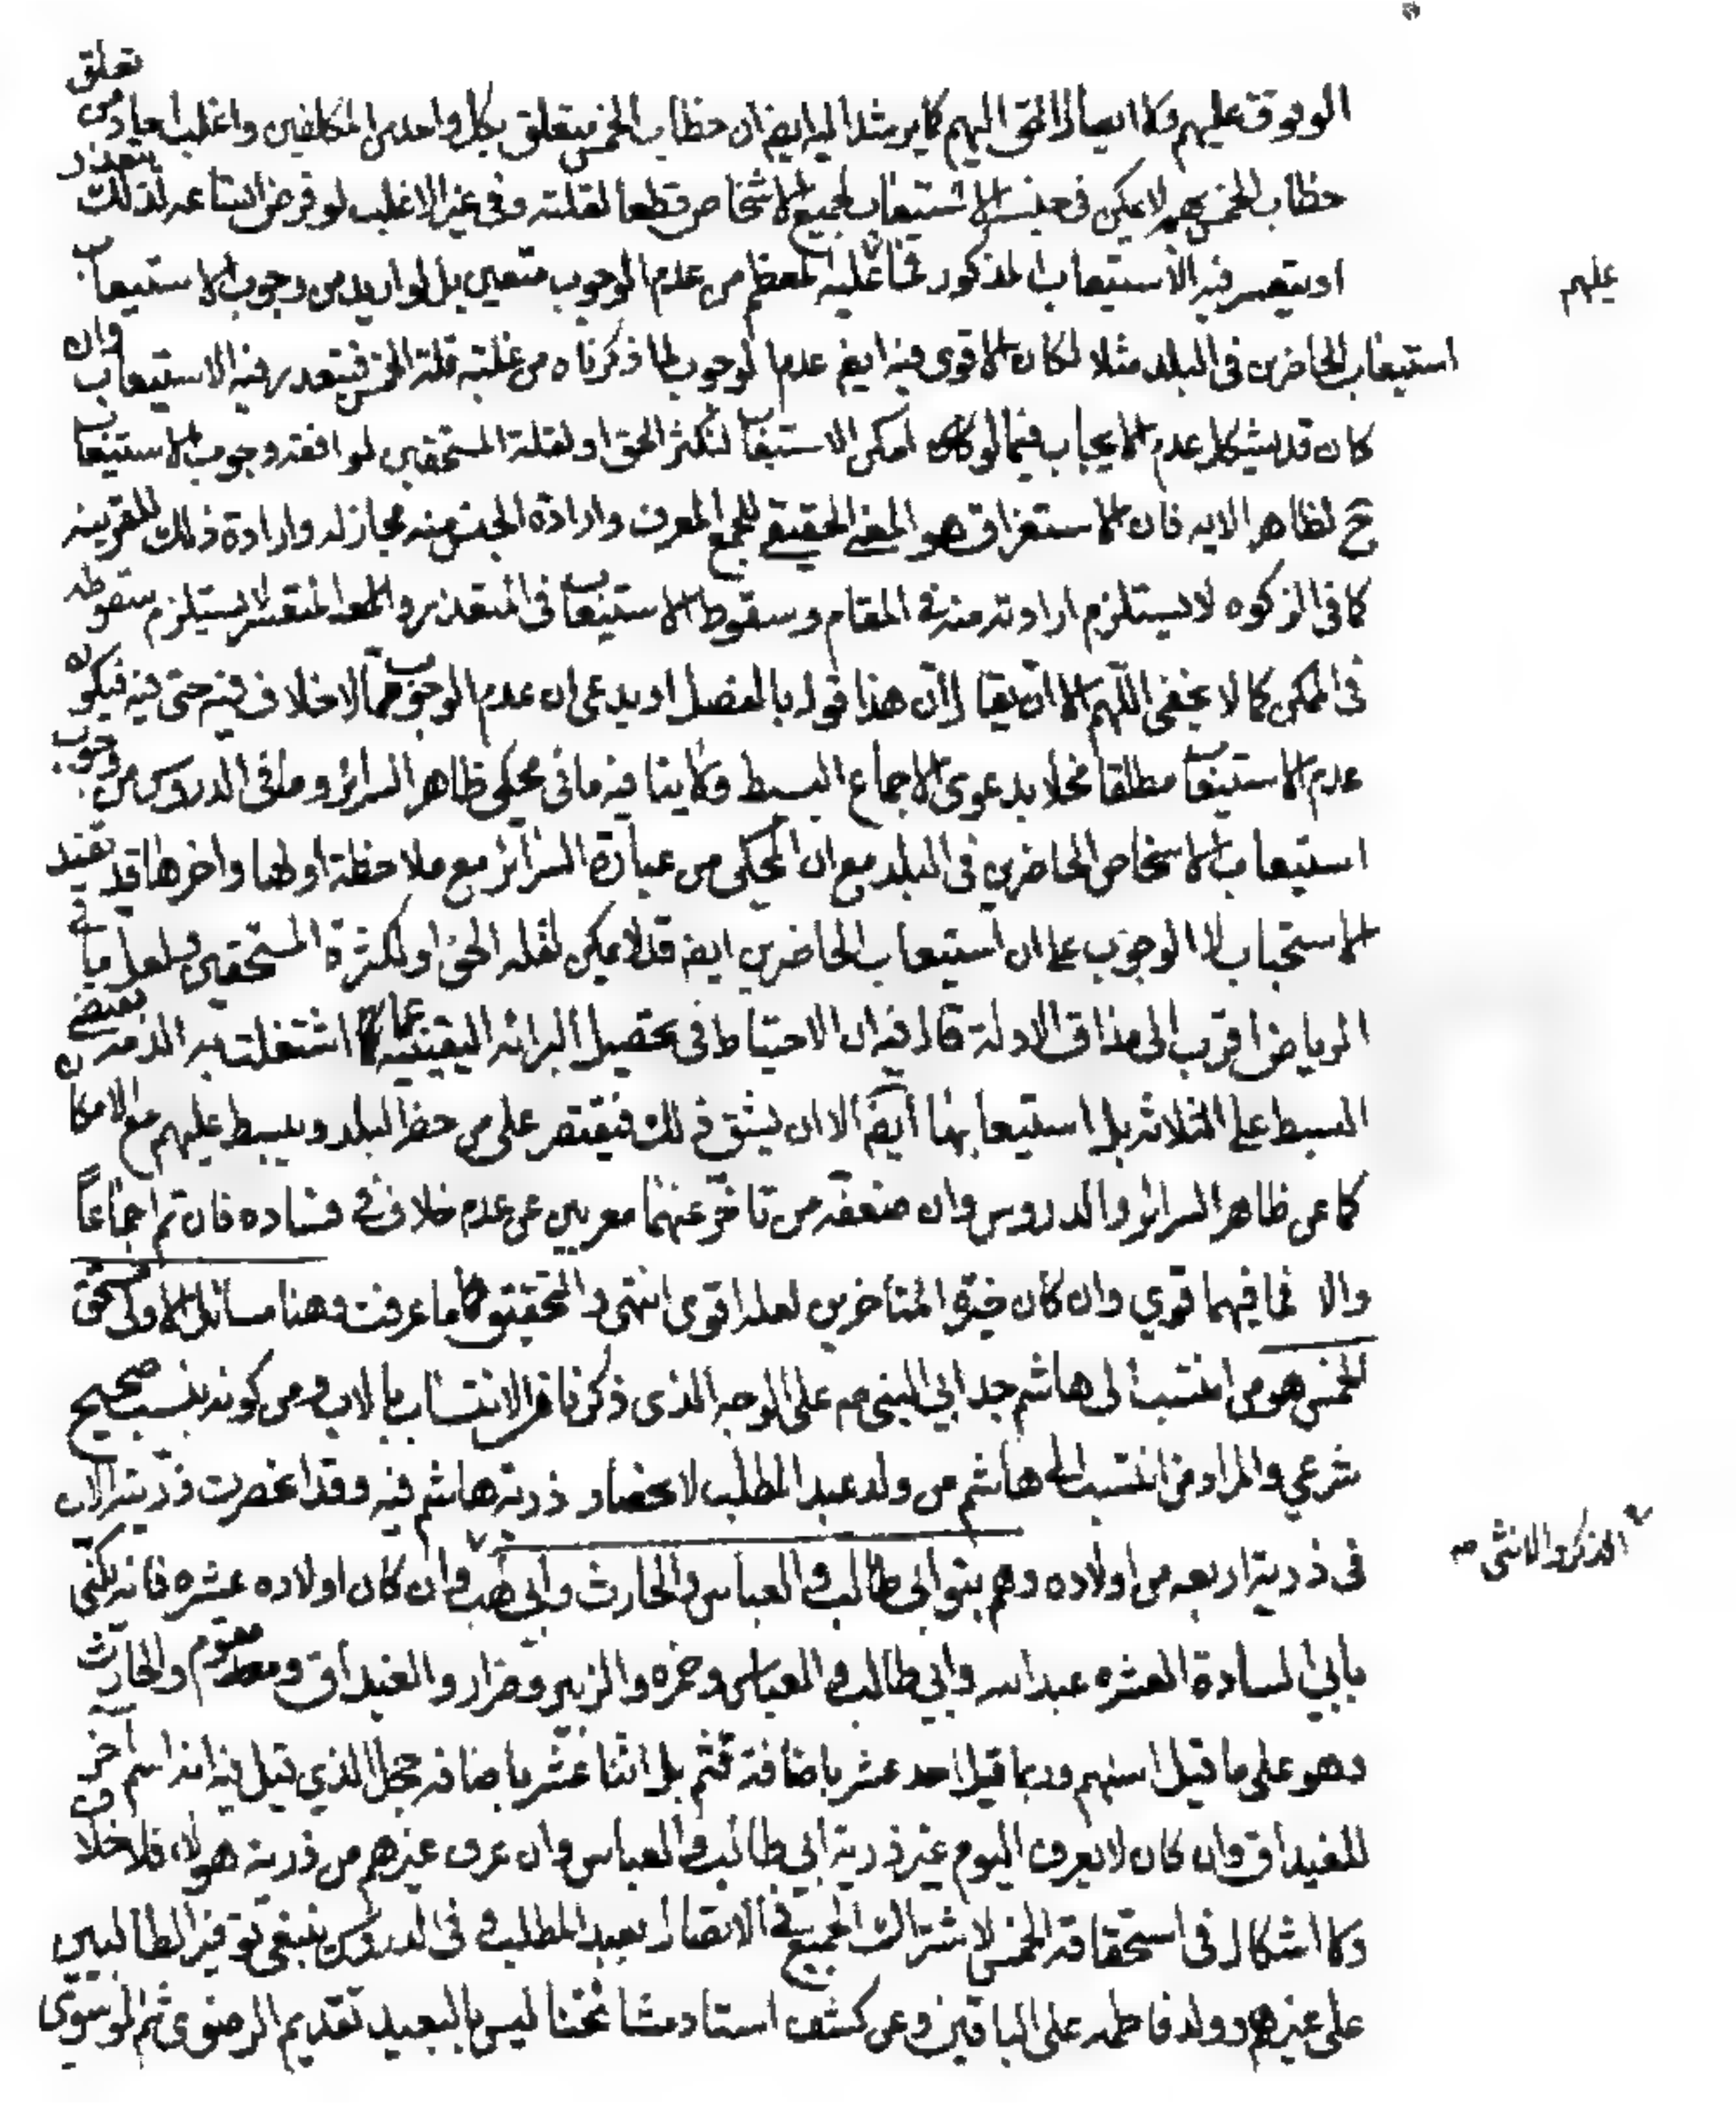 الوقوف عليهم ولا ايصال الحق اليهم كما يرشد اليه ايضا ان خطاب الخمس يتعلق بكل واحد من المكلفين واغلب احاد من تعلق
خطاب الخمس بهم لا يمكن في جنسه الاستيعاب لجميع الاشخاص قطعا لقلته وفي غير الاغلب لو فرض اتساعه لذلك يتعذر
او يتعسر فيه الاستيعاب المذكور فما عليه المعظم من عدم الوجوب متعين بل لو اريد من وجوب الاستيعاب
عليهم
استيعاب الحاضرين في البلد مثلا لكان الاقوى فيه ايضا عدم الوجوب لما ذكرناه من غلبة قلة الخمس فيتعذر فيه الاستيعاب وان
كان قد يشكل عدم الايجاب فيما لو امكن الاستيعاب لتكثر الحق او لقلة المستحقين لموافقة وجوب الاستيعاب
ح لظاهر الايه فان الاستغراق هو المعنى الحقيقي للجمع المعرف وارادة الجنس منه مجاز له وارادة ذلك للقرينه
كما في الزكوه لا يستلزم ارادته منه في المقام وسقوط الاستيعاب في المتعذر والمتعسر لا يستلزم سقوطه
في الممكن كما لا يخفى اللهم الا ان يقال ان هذا قول بالفصل او يدعى ان عدم الوجوب مما لا خلاف فيه حتى فيه فيكون
عدم الاستيعاب مطلقا محلا بدعوى الاجماع البسيط ولا ينافيه ما في محكي ظاهر السرائر وما في الدروس من وجوب
استيعاب الاشخاص الحاضرين في البلد مع ان المحكي من عبارة السرائر مع ملاحظة اولها واخرها قد تفيد
الاستحباب لا الوجوب على ان استيعاب الحاضرين ايضا قد لا يمكن لقله الحق او لكثرة المستحقين ولعل ما في
الرياض اقرب الى مذاق الادلة قال فيه ان الاحتياط في تحصيل البرائه اليقينيه عما اشتغلت به الذمه يقتضي
البسط على الثلاثه بل استيعابها ايضا الا ان يشق ذلك فيقتصر على من حضر البلد ويبسط عليهم مع الامكان
كما عن ظاهر السرائر والدروس وان ضعفه من تاخر عنهما معربين عن عدم خلاف في فساده فان تم اجماعاً
والا فما فيهما قوي وان كان خيرة المتأخرين لعله اقوى انتهى والتحقيق ما عرفت وهنا مسائل الاولى مستحق
الخمس هو من انتسب الى هاشم جد ابي النبي صم على الوجه الذي ذكرنا من الانتساب بالاب ومن كونه بنسب صحيح
شرعي والمراد من انتسب الى هاشم من ولد عبد المطلب لانحصار ذرية هاشم فيه وقد انحصرت ذريته الان
الذكر والانثى صه
في ذرية اربعه من اولاده وهم بنو ابي طالب والعباس والحارث وابي لهب وان كان اولاده عشره فانه يكنى
بابي السادة العشره عبد الله وابي طالب والعباس وحمزه والزبير وضرار والغيداق ومقوم والحارث
وهو على ما قيل اسنهم وربما قيل احد عشر باضافة قثم بل اثنا عشر باضافه حجل الذي قيل فيه انه اسم آخر
للغيداق وان كان لا يعرف اليوم غير ذرية ابي طالب والعباس وان عرف غيرهم من ذرية هولاء فلا خلاف
ولا اشكال في استحقاقه الخمس لاشتراك الجميع في الاتصال بعبد المطلب وفي الدروس ينبغي توفير الطالبيين
على غيرهم وولد فاطمه على الباقين وعن كشف استاد مشائخنا ليس بالبعيد تقديم الرضوي ثم الموسوي